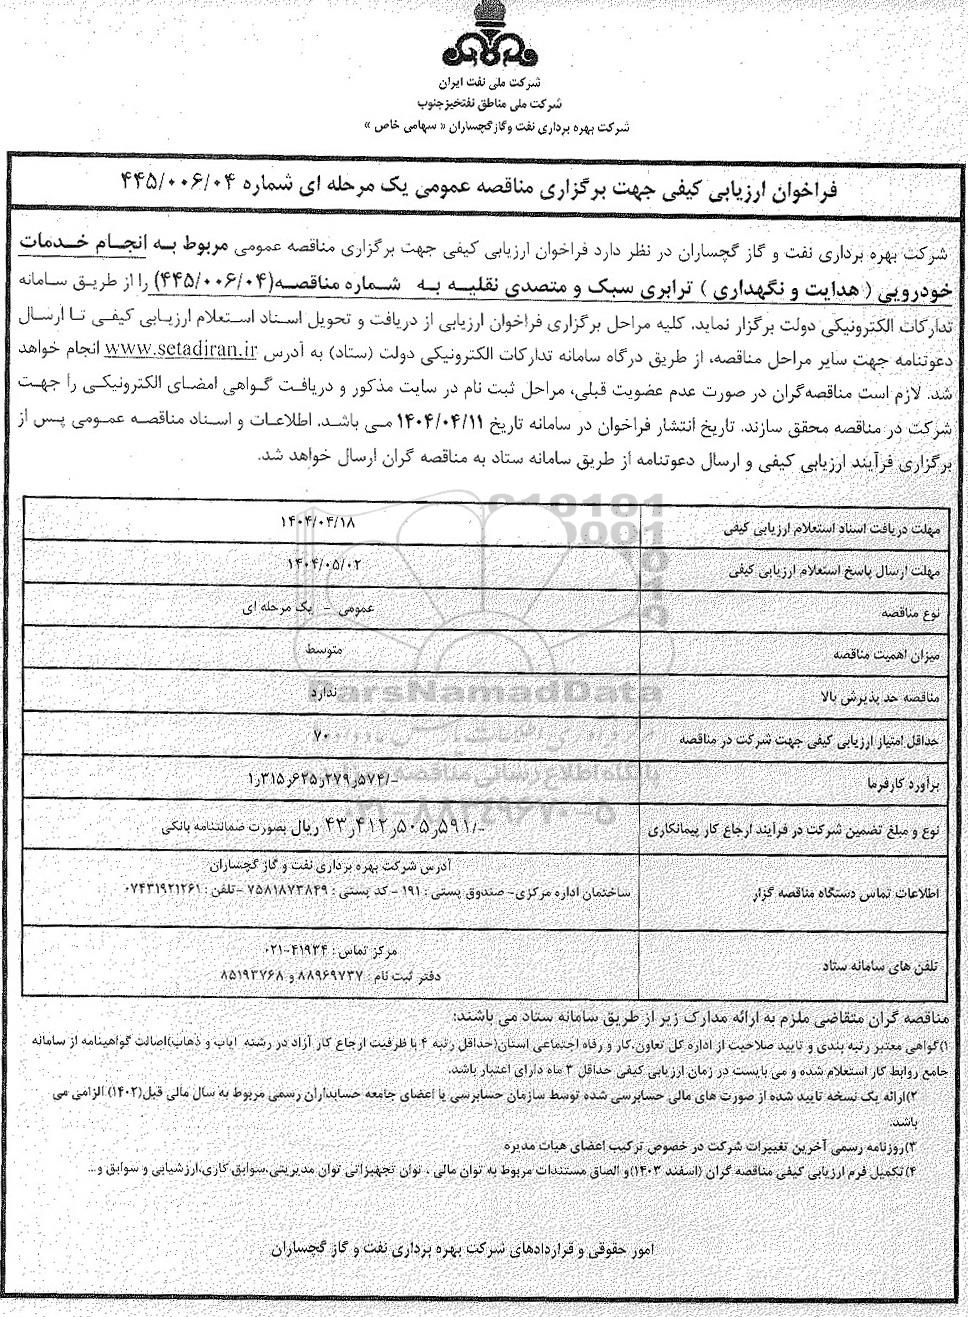 شرکت ملی نفت ایران
شرکت ملی مناطق نفتخیز جنوب
شرکت بهره برداری نفت و گاز گچساران « سهامی خاص »
فراخوان ارزیابی کیفی جهت برگزاری مناقصه عمومی یک مرحله ای شماره ۴۴۵/۰۰۶/۰۴
شرکت بهره برداری نفت و گاز گچساران در نظر دارد فراخوان ارزیابی کیفی جهت برگزاری مناقصه عمومی مربوط به انجام خدمات
خودرویی ( هدایت و نگهداری ) ترابری سبک و متصدی نقلیه به شماره مناقصه(۴۴۵/۰۰۶/۰۴) را از طریق سامانه
تدارکات الکترونیکی دولت برگزار نماید. کلیه مراحل برگزاری فراخوان ارزیابی از دریافت و تحویل اسناد استعلام ارزیابی کیفی تا ارسال
دعوتنامه جهت سایر مراحل مناقصه، از طریق درگاه سامانه تدارکات الکترونیکی دولت (ستاد) به آدرس www.setadiran.ir انجام خواهد
شد. لازم است مناقصه‌گران در صورت عدم عضویت قبلی، مراحل ثبت نام در سایت مذکور و دریافت گواهی امضای الکترونیکی را جهت
شرکت در مناقصه محقق سازند. تاریخ انتشار فراخوان در سامانه تاریخ ۱۴۰۴/۰۴/۱۱ می باشد. اطلاعات و اسناد مناقصه عمومی پس از
برگزاری فرآیند ارزیابی کیفی و ارسال دعوتنامه از طریق سامانه ستاد به مناقصه گران ارسال خواهد شد.
مهلت دریافت اسناد استعلام ارزیابی کیفی ۱۴۰۴/۰۴/۱۸
مهلت ارسال پاسخ استعلام ارزیابی کیفی ۱۴۰۴/۰۵/۰۲
نوع مناقصه عمومی - یک مرحله ای
میزان اهمیت مناقصه متوسط
مناقصه حد پذیرش بالا ندارد
ParsNamadData
حداقل امتیاز ارزیابی کیفی جهت شرکت در مناقصه ۷۰
پایگاه اطلاع رسانی مناقصه
برآورد کارفرما ۱٫۳۱۵٫۶۲۵٫۲۷۹٫۵۷۴/-
۰۲۱-۸۸۳۴۹۶۷۰-۵
نوع و مبلغ تضمین شرکت در فرآیند ارجاع کار پیمانکاری ۴۳٫۴۱۲٫۵۰۵٫۵۹۱/- ریال بصورت ضمانتنامه بانکی
اطلاعات تماس دستگاه مناقصه گزار آدرس شرکت بهره برداری نفت و گاز گچساران
ساختمان اداره مرکزی- صندوق پستی : ۱۹۱ - کد پستی : ۷۵۸۱۸۷۳۸۴۹ -تلفن : ۰۷۴۳۱۹۲۱۲۶۱
تلفن های سامانه ستاد مرکز تماس : ۴۱۹۳۴-۰۲۱
دفتر ثبت نام : ۸۸۹۶۹۷۳۷ و ۸۵۱۹۳۷۶۸
مناقصه گران متقاضی ملزم به ارائه مدارک زیر از طریق سامانه ستاد می باشند:
۱)گواهی معتبر رتبه بندی و تایید صلاحیت از اداره کل تعاون،کار و رفاه اجتماعی استان(حداقل رتبه ۴ با ظرفیت ارجاع کار آزاد در رشته ایاب و ذهاب)اصالت گواهینامه از سامانه
جامع روابط کار استعلام شده و می بایست در زمان ارزیابی کیفی حداقل ۳ ماه دارای اعتبار باشد.
۲)ارائه یک نسخه تایید شده از صورت های مالی حسابرسی شده توسط سازمان حسابرسی یا اعضای جامعه حسابداران رسمی مربوط به سال مالی قبل(۱۴۰۲) الزامی می
باشد.
۳)روزنامه رسمی آخرین تغییرات شرکت در خصوص ترکیب اعضای هیات مدیره
۴)تکمیل فرم ارزیابی کیفی مناقصه گران (اسفند ۱۴۰۳)و الصاق مستندات مربوط به توان مالی ، توان تجهیزاتی توان مدیریتی،سوابق کاری،ارزشیابی و سوابق و...
امور حقوقی و قراردادهای شرکت بهره برداری نفت و گاز گچساران